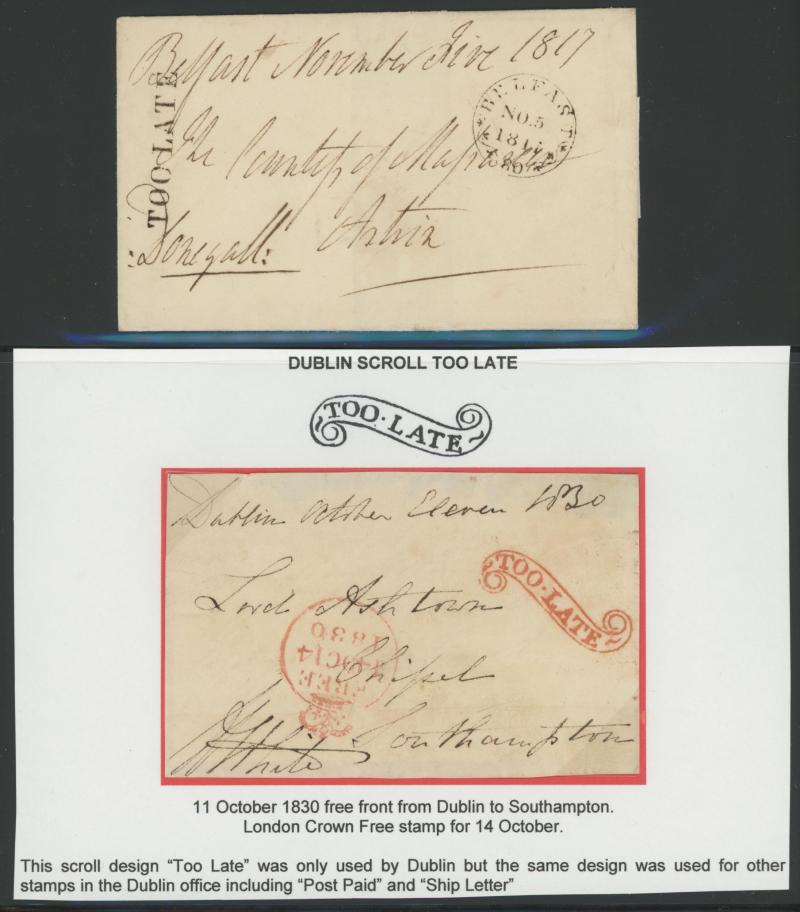 Belfast November Five 1817
TOO LATE
BELFAST
NO.5
181
80
The Countess of
Donegall: Antrim
DUBLIN SCROLL TOO LATE
TOO·LATE
Dublin October Eleven 1830
TOO·LATE
Lord Ashtown
1830
OC14
FREE
Chepel
Southampton
White
11 October 1830 free front from Dublin to Southampton.
London Crown Free stamp for 14 October.
This scroll design “Too Late” was only used by Dublin but the same design was used for other
stamps in the Dublin office including “Post Paid” and “Ship Letter”